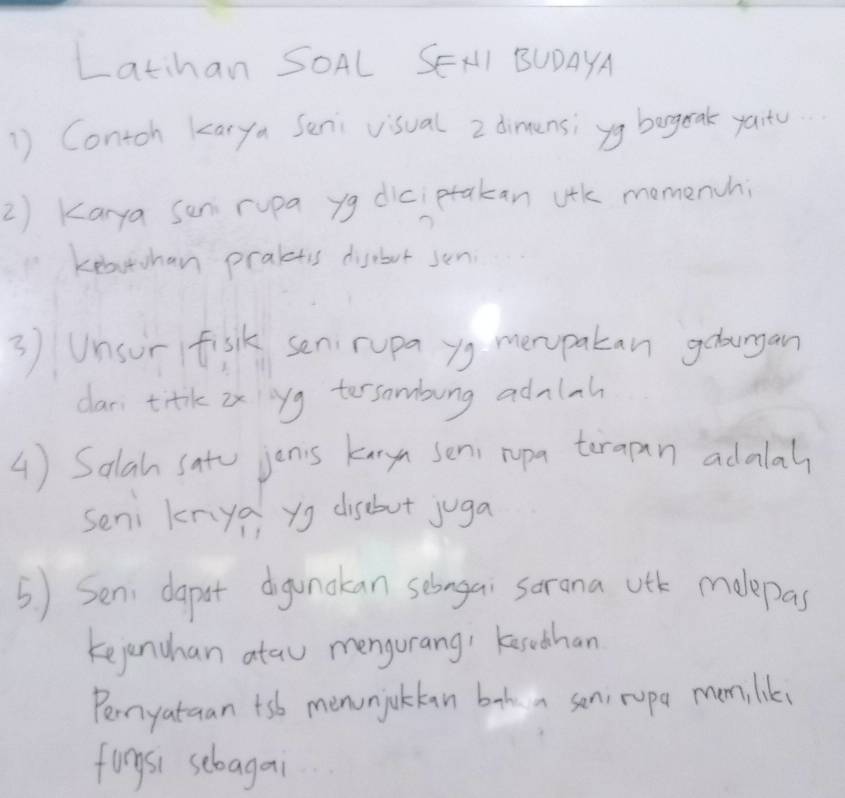 Latihan SOAL SENI BUDAYA
1) Contoh karya Seni visual 2 dimensi yg bergerak yaitu...
2) Karya seni rupa yg diciptakan utk memenuhi
kebutuhan praktis disebut seni...
3) Unsur fisik seni rupa yg merupakan gabungan
dari titik 2x yg tersambung adalah...
4) Salah satu jenis karya seni rupa terapan adalah
seni kriya yg disebut juga...
5.) Seni dapat digunakan sebagai sarana utk melepas
kejenuhan atau mengurangi kesedihan.
Pernyataan tsb menunjukkan bahwa seni rupa memiliki
fungsi sebagai...